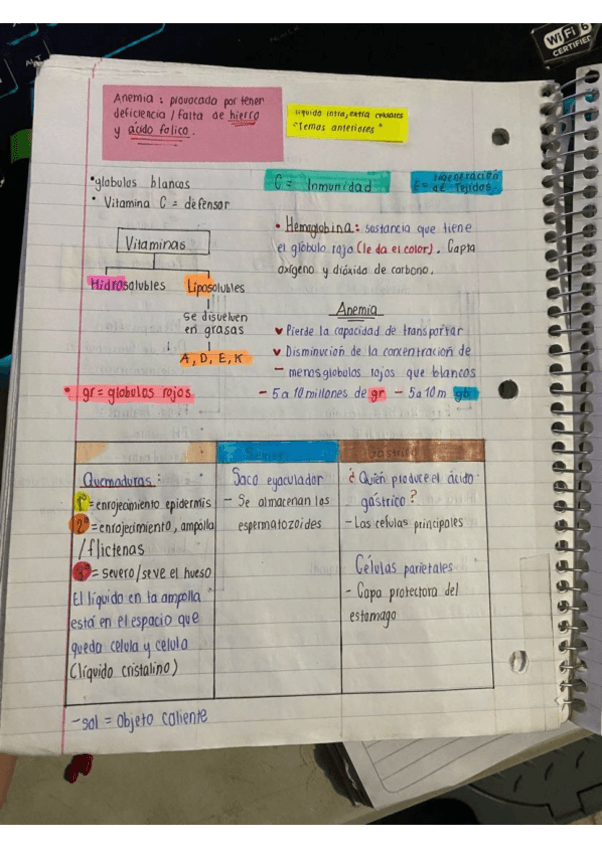 WiFi 6
CERTIFIED
Anemia : provocada por tener
deficiencia / falta de hierro
y ácido folico.
líquido intra, extra celulares
"Temas anteriores"
•globulos blancos
• Vitamina C = defensor
C = Inmunidad
E = regeneración
de Tejidos.
Vitaminas
Hidrosolubles
Liposolubles
se disuelven
en grasas
A, D, E, K
• gr = globulos rojos
• Hemoglobina: sustancia que tiene
el glóbulo rojo (le da el color). Capta
oxígeno y dióxido de carbono.
Anemia
Pierde la capacidad de transportar
Disminución de la concentración de
- menos globulos rojos que blancos
- 5 a 10 millones de gr - 5 a 10 m gb
Gástrico
Quemaduras:
1°=enrojecimiento epidermis
2°=enrojecimiento, ampolla
/flictenas
3°= severo/se ve el hueso
El líquido en la ampolla
está en el espacio que
queda celula y celula
(líquido cristalino)
Saco eyaculador
- Se almacenan los
espermatozoides
¿Quién produce el ácido
gástrico?
- Las celulas principales
Células parietales
- Capa protectora del
estomago
-sol = objeto caliente